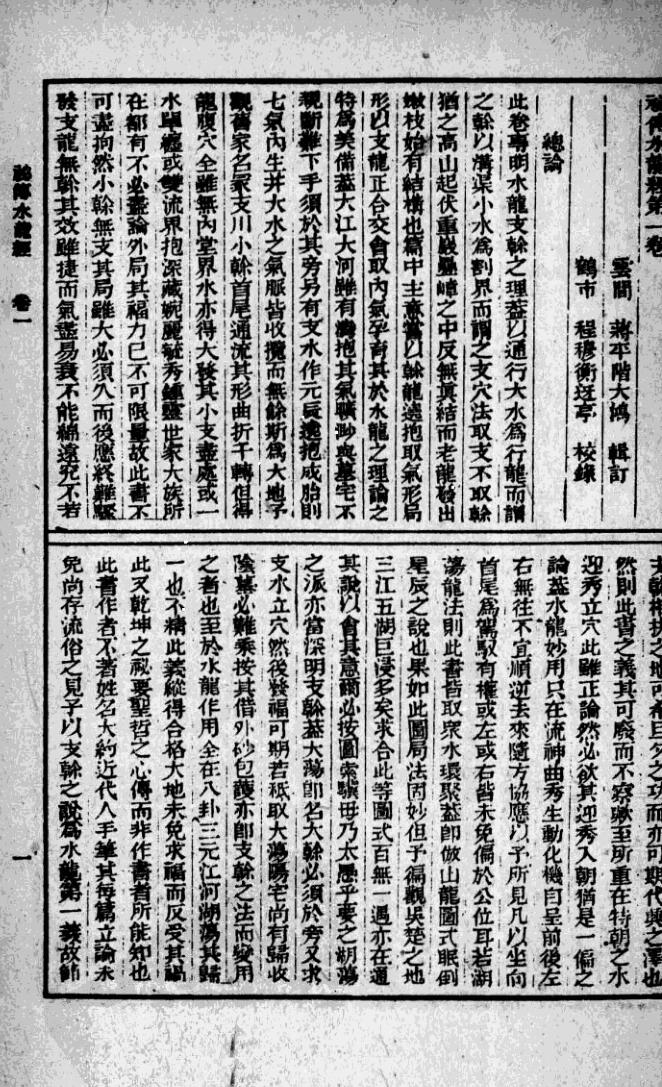 秘傳水龍經第一卷
雲間　蔣平階大鴻　輯訂
鶴市　程穆衡迓亭　校錄
總論
此卷專明水龍支幹之理蓋以通行大水爲行龍而謂
之幹以溝渠小水爲割界而謂之支穴法取支不取幹
猶之高山起伏重巖疊嶂之中反無眞結而老龍發出
嫩枝始有結構也篇中主意當以幹龍遶抱取氣形局
形以支龍正合交會取內氣孕育其於水龍之理論之
特爲美備蓋大江大河雖有灣抱其氣曠渺與墓宅不
親斷難下手須於其旁另有支水作元辰遶抱成胎則
七氣內生幷大水之氣脈皆收攬而無餘斯爲大地予
觀舊家名冢支川小幹首尾通流其形曲折千轉但得
龍腹穴全雖無內堂界水亦得大發其小支盡處或一
水單纏或雙流界抱深藏婉麗毓秀鍾靈世家大族所
在都有不必盡論外局其福力已不可限量故此書不
可盡拘然小幹無支其局雖大必須久而後應終難驟
發支龍無幹其效雖捷而氣盡易衰不能綿遠究不若
支幹相扶之地可希巨
之功而亦可期代興之澤也
然則此書之義其可廢而不察歟至所重在特朝之水
迎秀立穴此雖正論然必欲其迎秀入朝猶是一偏之
論蓋水龍妙用只在流神曲秀生動化機自呈前後左
右無往不宜順逆去來隨方協應以予所見凡以坐向
首尾爲駕馭有權或左或右皆未免偏於公位耳若湖
蕩龍法則此書皆取衆水環聚蓋卽倣山龍圖式眠倒
星辰之說也果如此圖局法固妙但予徧觀吳楚之地
三江五湖巨浸多矣求合此等圖式百無一遇亦在通
其說以會其意爾必按圖索驥毋乃太愚乎要之湖蕩
之派亦當深明支幹蓋大蕩卽名大幹必須於旁又求
支水立穴然後發福可期若祇取大蕩陽宅尚有歸收
陰墓必難乘按其借外砂包護亦卽支幹之法而變用
之者也至於水龍作用全在八卦三元江河湖蕩其歸
一也不精此義縱得合格大地未免求福而反受其禍
此又乾坤之祕要聖哲之心傳而非作書者所能知也
此書作者不著姓名大約近代人手筆其每篇立論未
免尚存流俗之見予以支幹之說爲水龍第一義故節
秘傳水龍經　卷一
一